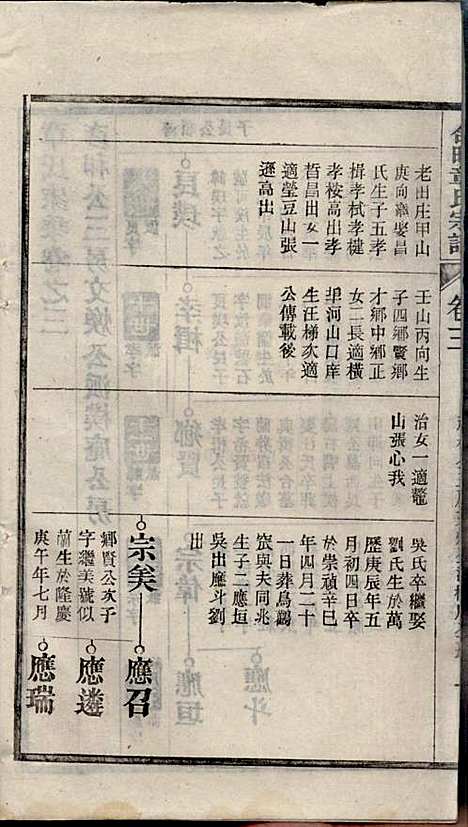 老田庄甲山
庚向繼娶昌
氏生子五孝
揖孝栻孝楗
孝桉高出孝
哲昌出女一
適瑩豆山張
遜高出
壬山丙向生
子四鄉賢鄉
才鄉中鄉正
女二長適橫
河山口库
生汪梯次適
公傳載後
治女一適龍
山張心我
吳氏卒繼娶
劉氏生於萬
歷庚辰年五
月初四日卒
於崇禎辛巳
年四月二十
一日葬烏鷂
與夫同兆
生子二應垣
吳出應斗劉
出
宗美 應召
鄉賢公次子
字繼美號似
蘭生於隆慶
庚午年七月
應遴
應瑞
氏宗譜
卷三